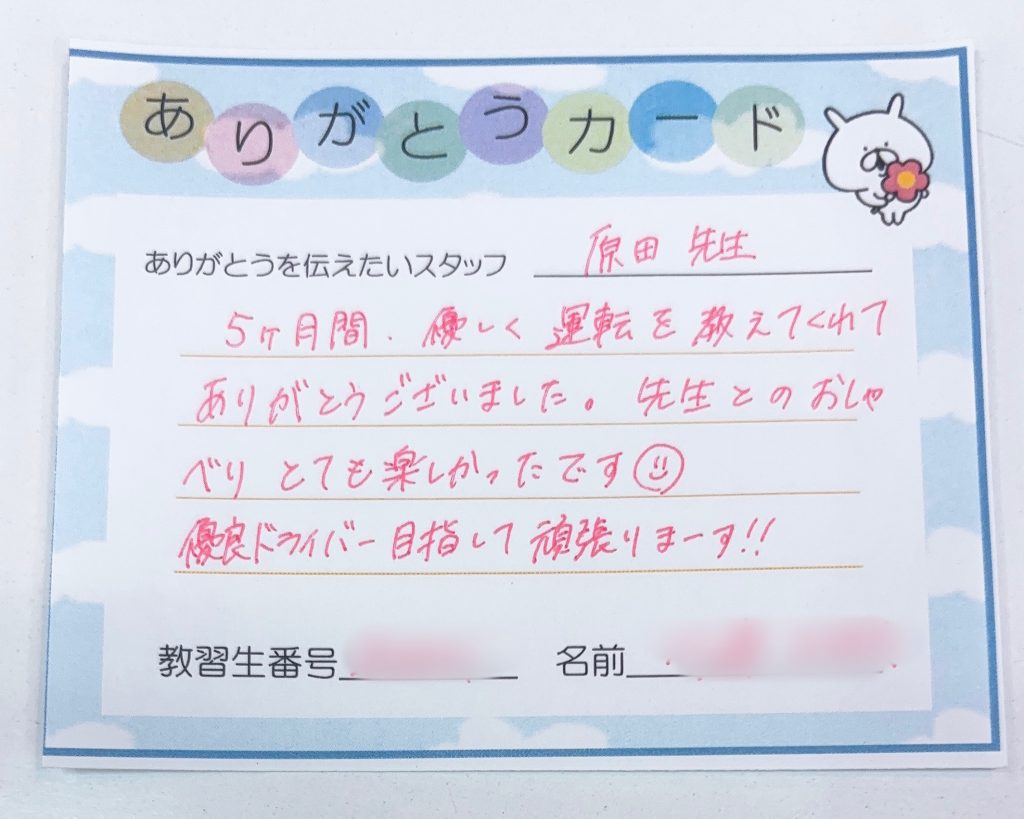 ありがとうカード
ありがとうを伝えたいスタッフ 原田 先生
5ヶ月間、優しく運転を教えてくれて
ありがとうございました。先生とのおしゃ
べりとても楽しかったです
優良ドライバー目指して頑張りまーす!!
教習生番号 名前